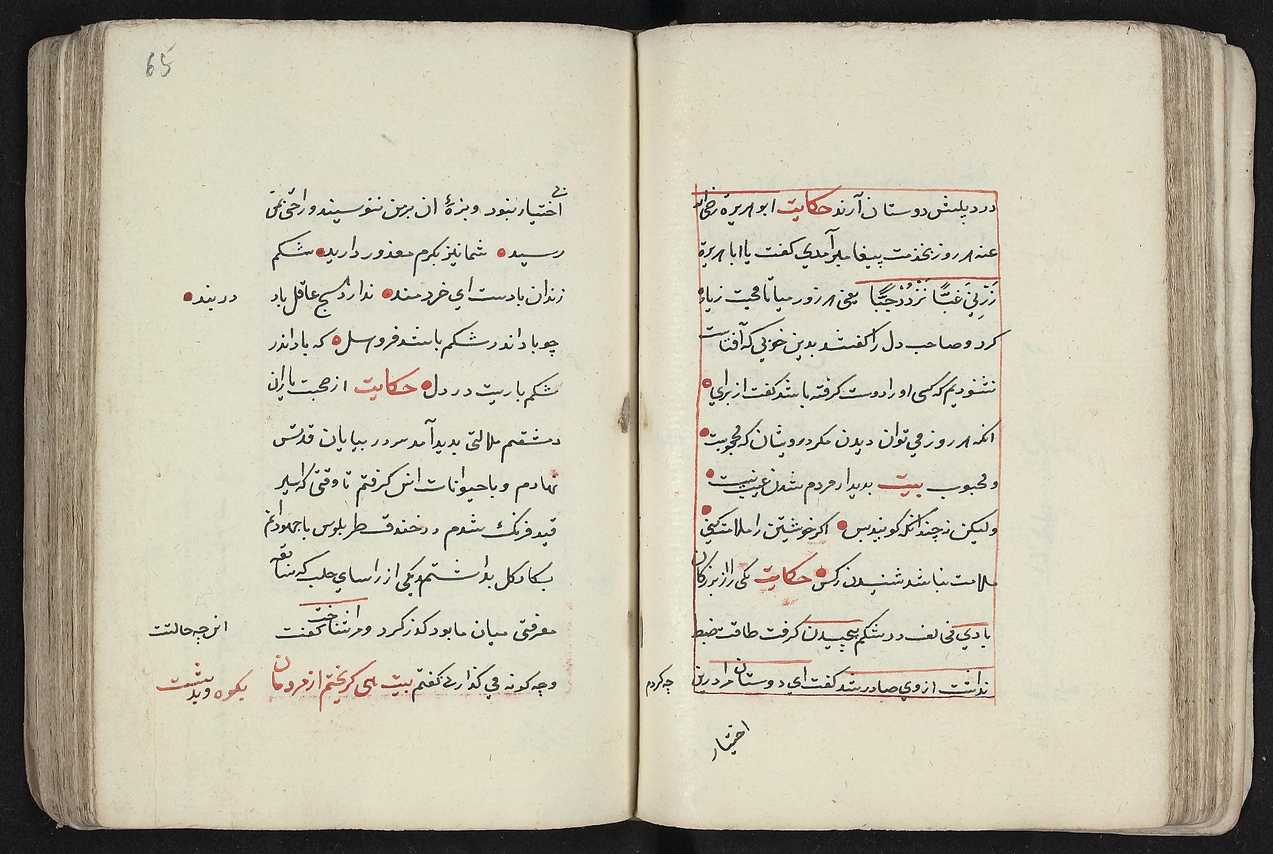 در دیلش دوستان آرند حکایت ابو هریره رضی الله
عنه هر روز بخدمت پیغامبر آمدی گفت یا ابا هریرة
زُرْنِي غَبًّا تَزْدَدْ حُبًّا یعنی هر روز میا تا محبت زیاد
کرد و صاحب دل را گفتند بدین خوبی که آفتابست
نشنودیم که کسی او را دوست گرفته باشد گفت از برای
آنکه هر روز می توان دیدن مکر درویشان که محجوبست
و محبوب بیت بدیدار مردم شدن عیب نیست
ولیکن نه چندانکه گویند بس اگر خویشتن را ملامت کنی
ملامت نباشد شنیدن ز کس حکایت یکی را از بزرگان
بادی مخالف در شکم پیچیدن گرفت طاقت ضبط
نداشت از وی صادر شد گفت ای دوستان مرا درین
چه کردم
اختیار
65
اختیار نبود و بزهٔ آن برمن ننویسند و راحتی بمن
رسید شما نیز بکرم معذور دارید شکم
زندان بادست ای خردمند ندارد هیچ عاقل باد
در بند
چو باد اندر شکم باشد فرو هل که باد اندر
شکم باریست در دل حکایت از صحبت یاران
دمشقم ملالتی بدید آمد سر در بیابان قدس
نهادم و با حیوانات انس گرفتم تا وقتی که اسیر
قید فرنک شدم در خندق طربلوس با جهودانم
بکار کل بداشتند یکی از راسای حلب که سابقه
معرفتی میان ما بود کذر کرد و مرا شناخت گفت
این چه حالتست
و چه گونه می گذاری گفتم بیت همی گریختم از مردمان
بکوه و بدشت